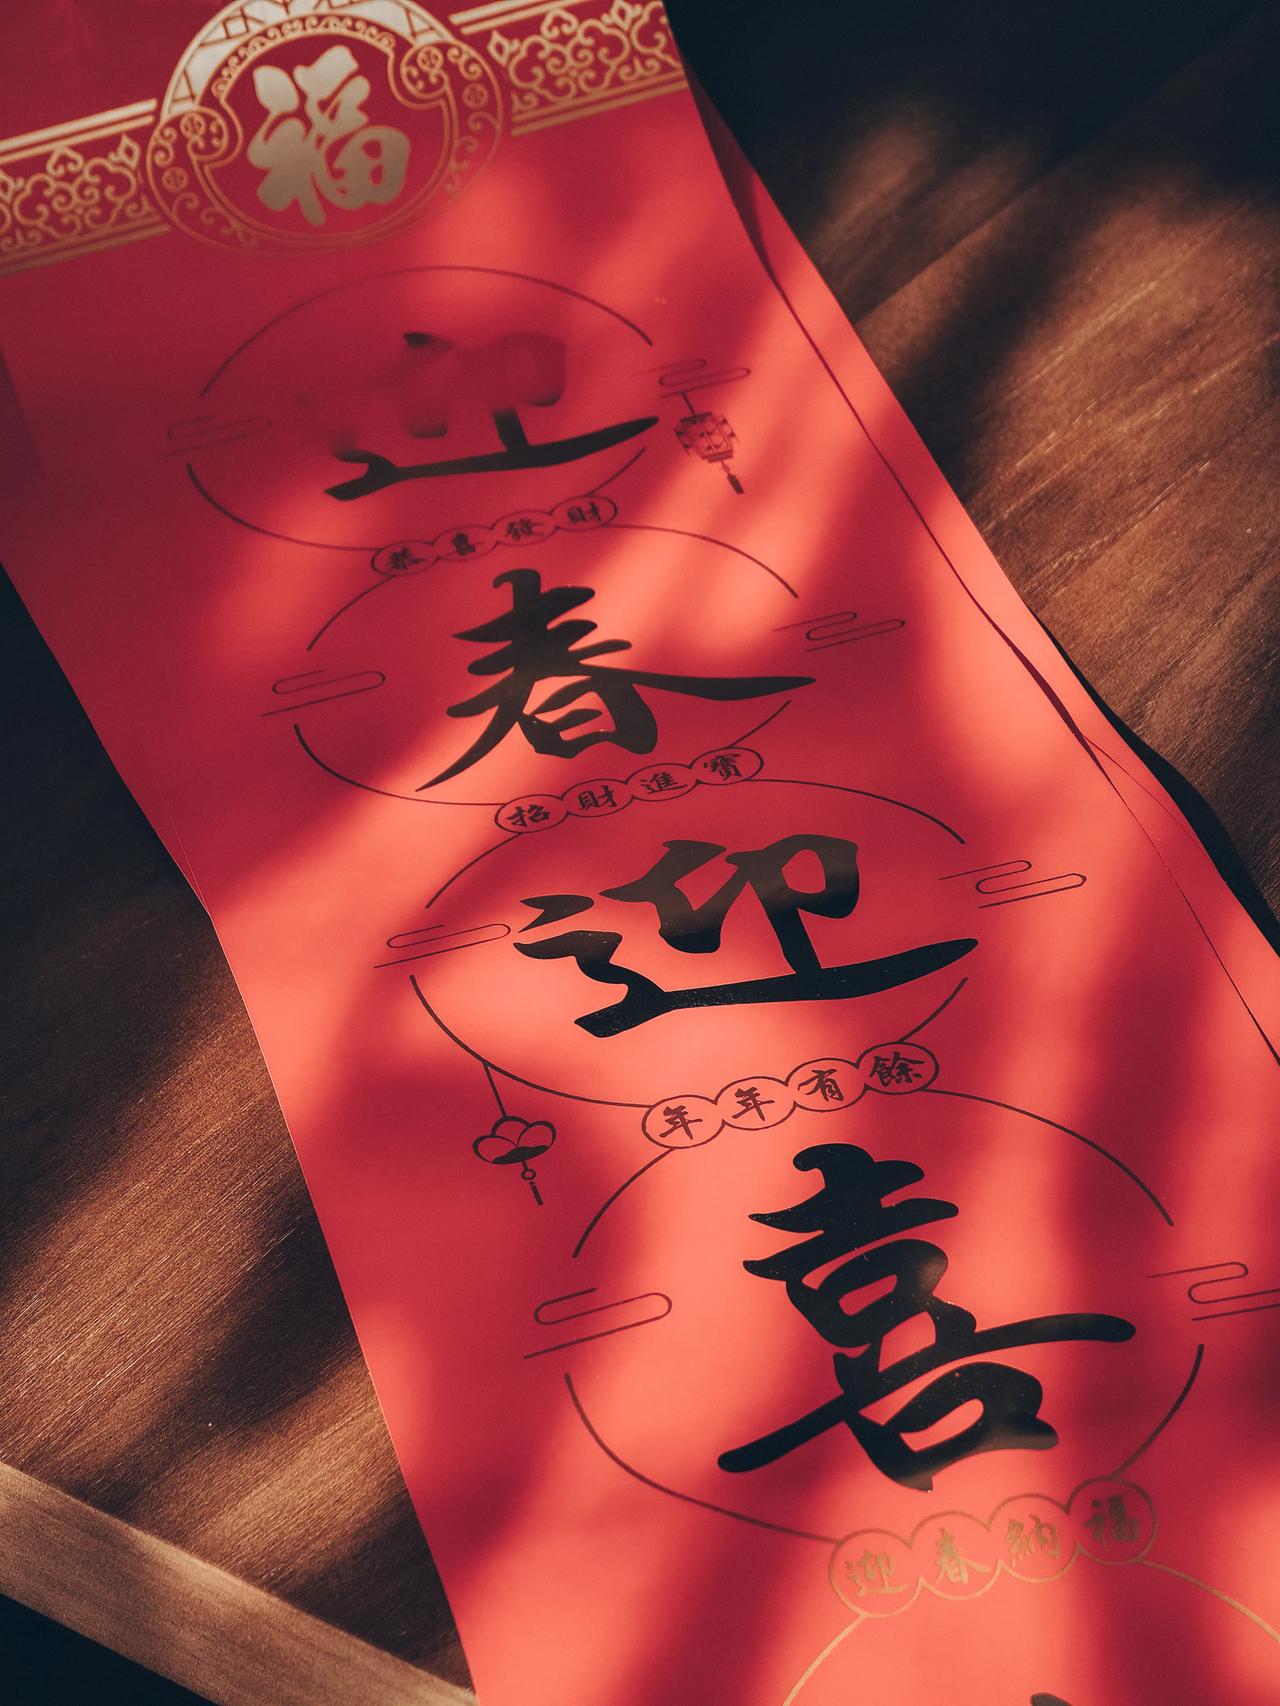 福
恭喜發財
春
招財進寶
迎
年年有餘
喜
迎春納福